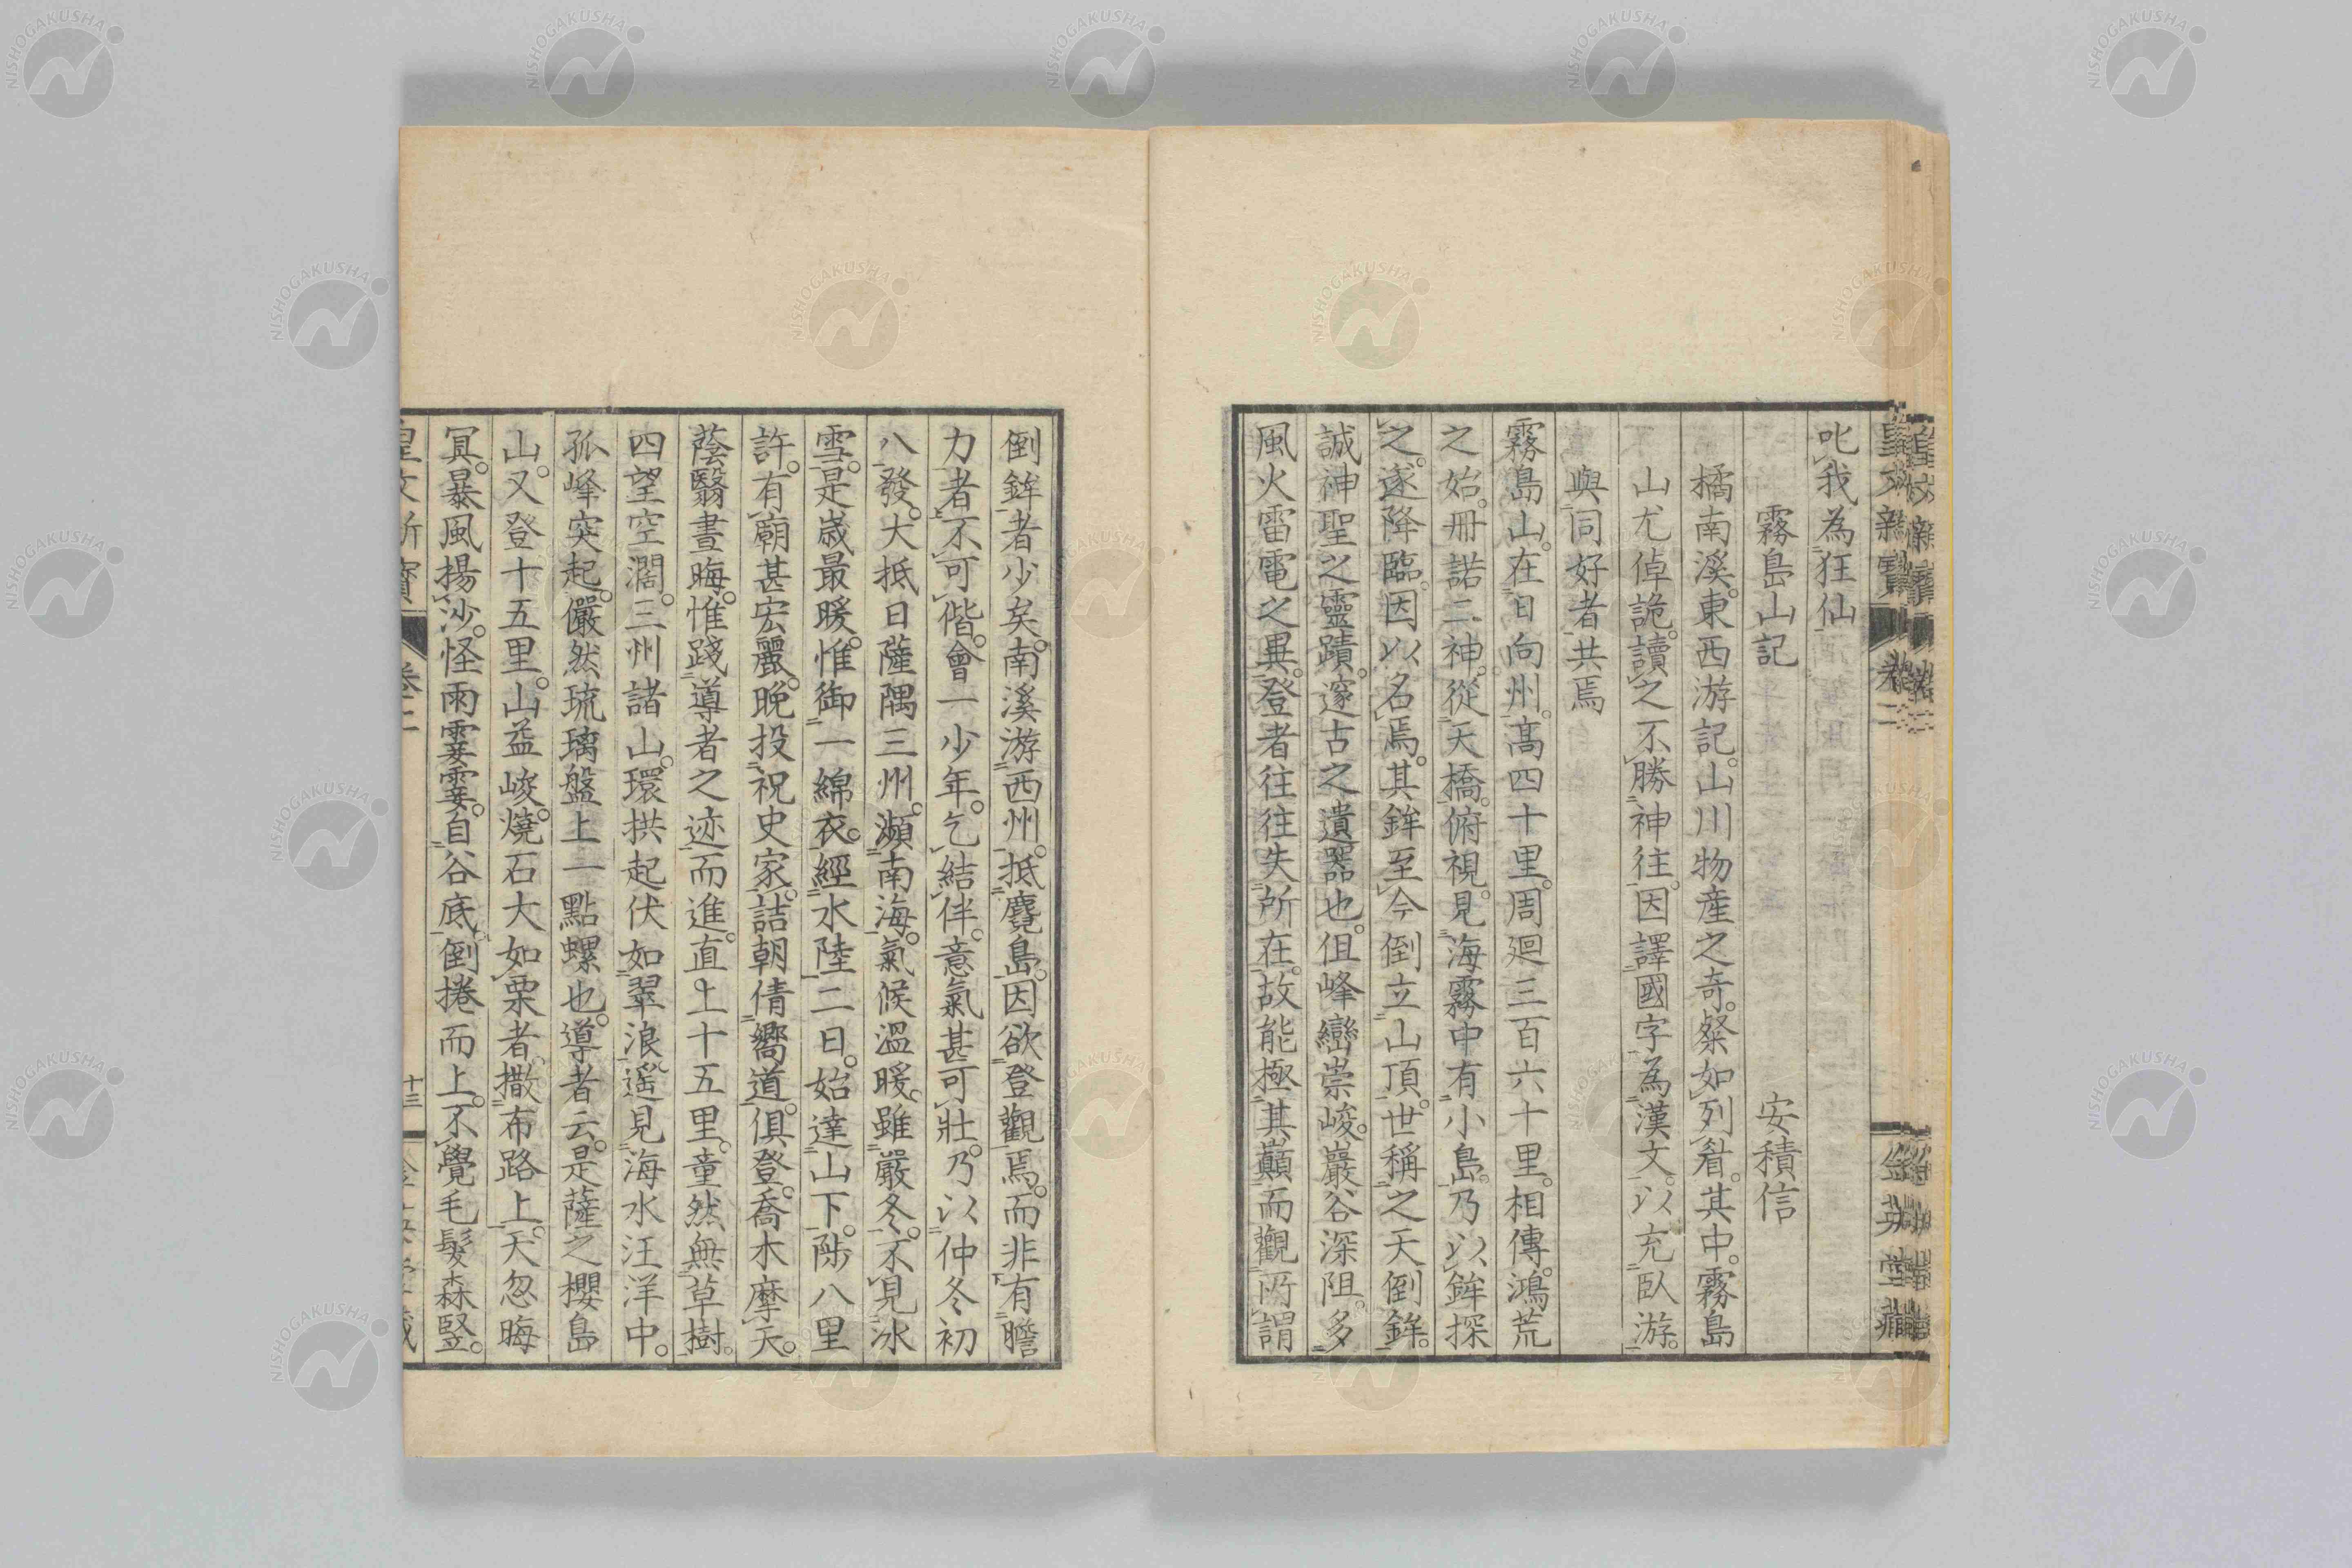 叱我為狂仙
霧島山記 安積信
橘南溪。東西游記。山川物産之奇。粲如列眉。其中。霧島
山尤倬詭。讀之不勝神往。因譯國字為漢文。以充臥游。
與同好者共焉
霧島山。在日向州。高四十里。周廻三百六十里。相傳。鴻荒
之始。冊諾二神。從天橋。俯視。見海霧中有小島。乃以鉾探
之。遂降臨。因以名焉。其鉾至今倒立山頂。世稱之天倒鉾。
誠神聖之靈蹟。邃古之遺器也。但峰巒崇峻。巖谷深阻。多
風火雷電之異。登者往往失所在。故能極其巔而觀所謂
倒鉾者少矣。南溪游西州。抵麑島。因欲登觀焉。而非有膽
力者不可偕。會一少年。乞結伴。意氣甚可壯。乃以仲冬初
八發。大抵日薩隅三州。瀕南海。氣候溫暖。雖嚴冬。不見冰
雪。是歲最暖。惟御一綿衣。經水陸二日。始達山下。陟八里
許。有廟甚宏麗。晚投祝史家。詰朝倩嚮道。俱登。喬木摩天。
蔭翳晝晦。惟踐導者之迹而進。直上十五里。童然無草樹。
四望空濶。三州諸山。環拱起伏如翠浪。遙見海水汪洋中。
孤峰突起。儼然琉璃盤上一點螺也。導者云。是薩之櫻島
山。又登十五里。山益峻。燒石大如栗者。撒布路上。天忽晦
冥。暴風揚沙。怪雨霎霎。自谷底倒捲而上。不覺毛髮森竪。
皇文新寶 卷二 十三